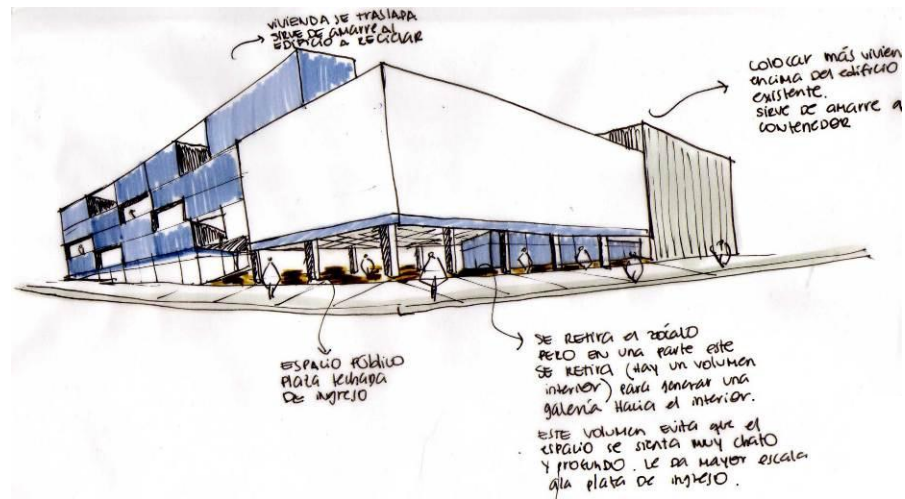 VIVIENDA SE TRASLAPA
SIRVE DE AMARRE AL
EDIFICIO A RECICLAR
COLOCAR MÁS VIVIEN
ENCIMA DEL EDIFICIO
EXISTENTE.
SIRVE DE AMARRE
CONTENEDOR
ESPACIO PÚBLICO
PLAZA TECHADA
DE INGRESO
SE RETIRA EL ZÓCALO
PERO EN UNA PARTE ESTE
SE RETIRA (HAY UN VOLUMEN
INTERIOR) PARA GENERAR UNA
GALERÍA HACIA EL INTERIOR.
ESTE VOLUMEN EVITA QUE EL
ESPACIO SE SIENTA MUY CHATO
Y PROFUNDO. LE DA MAYOR ESCALA
A LA PLAZA DE INGRESO.